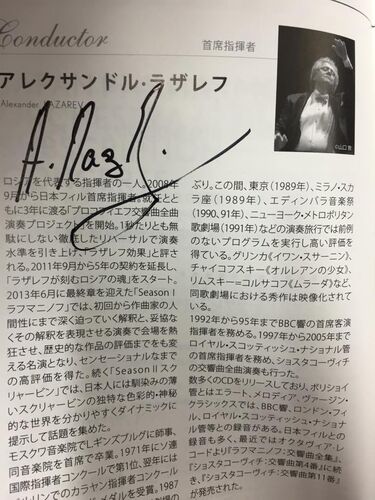 Conductor
首席指揮者
アレクサンドル・ラザレフ
Alexander LAZAREV
©山口敦
A. Laz
ロシアを代表する指揮者の一人。2008年
9月から日本フィル首席指揮者。就任とと
もに3年に渡る「プロコフィエフ交響曲全曲
演奏プロジェクト」を開始。1秒たりとも無
駄にしない徹底したリハーサルで演奏
水準を引き上げ「ラザレフ効果」と評さ
れる。2011年9月から5年の契約を延長し、
「ラザレフが刻むロシアの魂」をスタート。
2013年6月に最終章を迎えた「Season I
ラフマニノフ」では、初回から作曲家の人
間性にまで深く迫っていく解釈と、妥協な
くその解釈を表現させる演奏で会場を熱
狂させ、歴史的な作品の評価までをも変
える名演となり、センセーショナルなまで
の高評価を得た。続く「Season II スク
リャービン」では、日本人には馴染みの薄
いスクリャービンの独特な色彩的・神秘
的な世界を分かりやすくダイナミックに
提示して話題を集めた。
モスクワ音楽院でL.ギンズブルグに師事、
同音楽院を首席で卒業。1971年にソ連
国際指揮者コンクールで第1位、翌年には
ベルリンでのカラヤン指揮者コンクール
メダルを受賞。1987
ぶり。この間、東京(1989年)、ミラノ・スカ
ラ座(1989年)、エディンバラ音楽祭
(1990、91年)、ニューヨーク・メトロポリタン
歌劇場(1991年)などの演奏旅行では前例
のないプログラムを実行し高い評価を
得ている。グリンカ《イワン・スサーニン》、
チャイコフスキー《オルレアンの少女》、
リムスキー=コルサコフ《ムラーダ》など、
同歌劇場における秀作は映像化されて
いる。
1992年から95年までBBC響の首席客演
指揮者を務める。1997年から2005年まで
ロイヤル・スコティッシュ・ナショナル管
の首席指揮者を務め、ショスタコーヴィチ
の交響曲全曲演奏も行った。
数多くのCDをリリースしており、ボリショイ
管とはエラート、メロディア、ヴァージン・
クラシックスでは、BBC響、ロンドン・フィ
ル、ロイヤル・スコティッシュ・ナショナル
管等との録音がある。日本フィルとの
録音も多く、最近ではオクタヴィア・レ
コードより「ラフマニノフ:交響曲全集」、
「ショスタコーヴィチ:交響曲第4番」に続き、
「ショスタコーヴィチ:交響曲第11番」
が発売された。